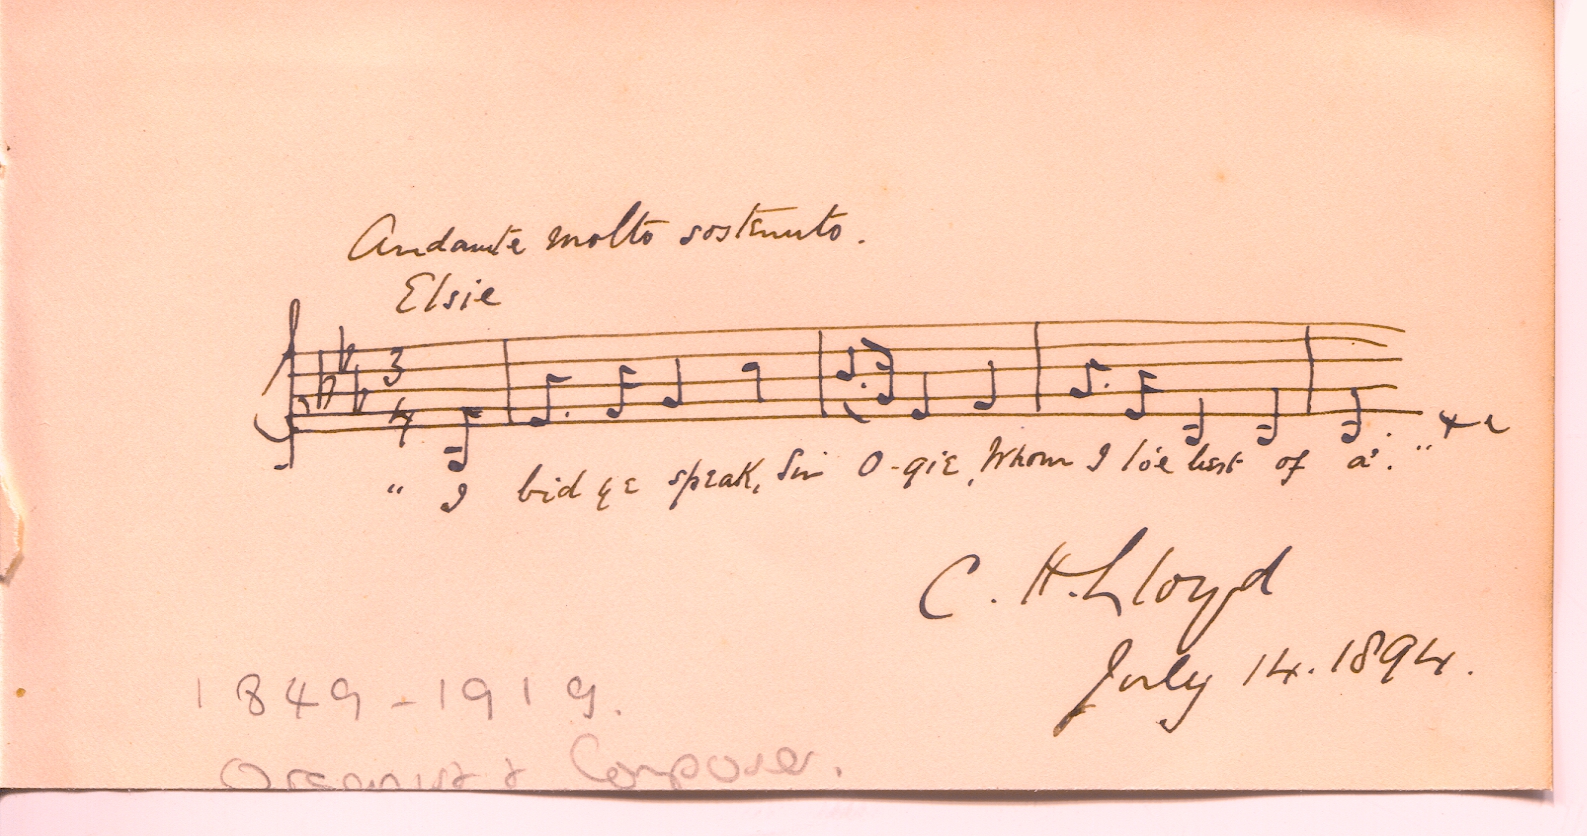 Andante molto sostenuto.
Elsie
3
4
"I bid ye speak, Sir O-gie, Whom I lo'e best of a'." &c
C. H. Lloyd
July 14. 1894.
1849-1919.
Organist & Composer.